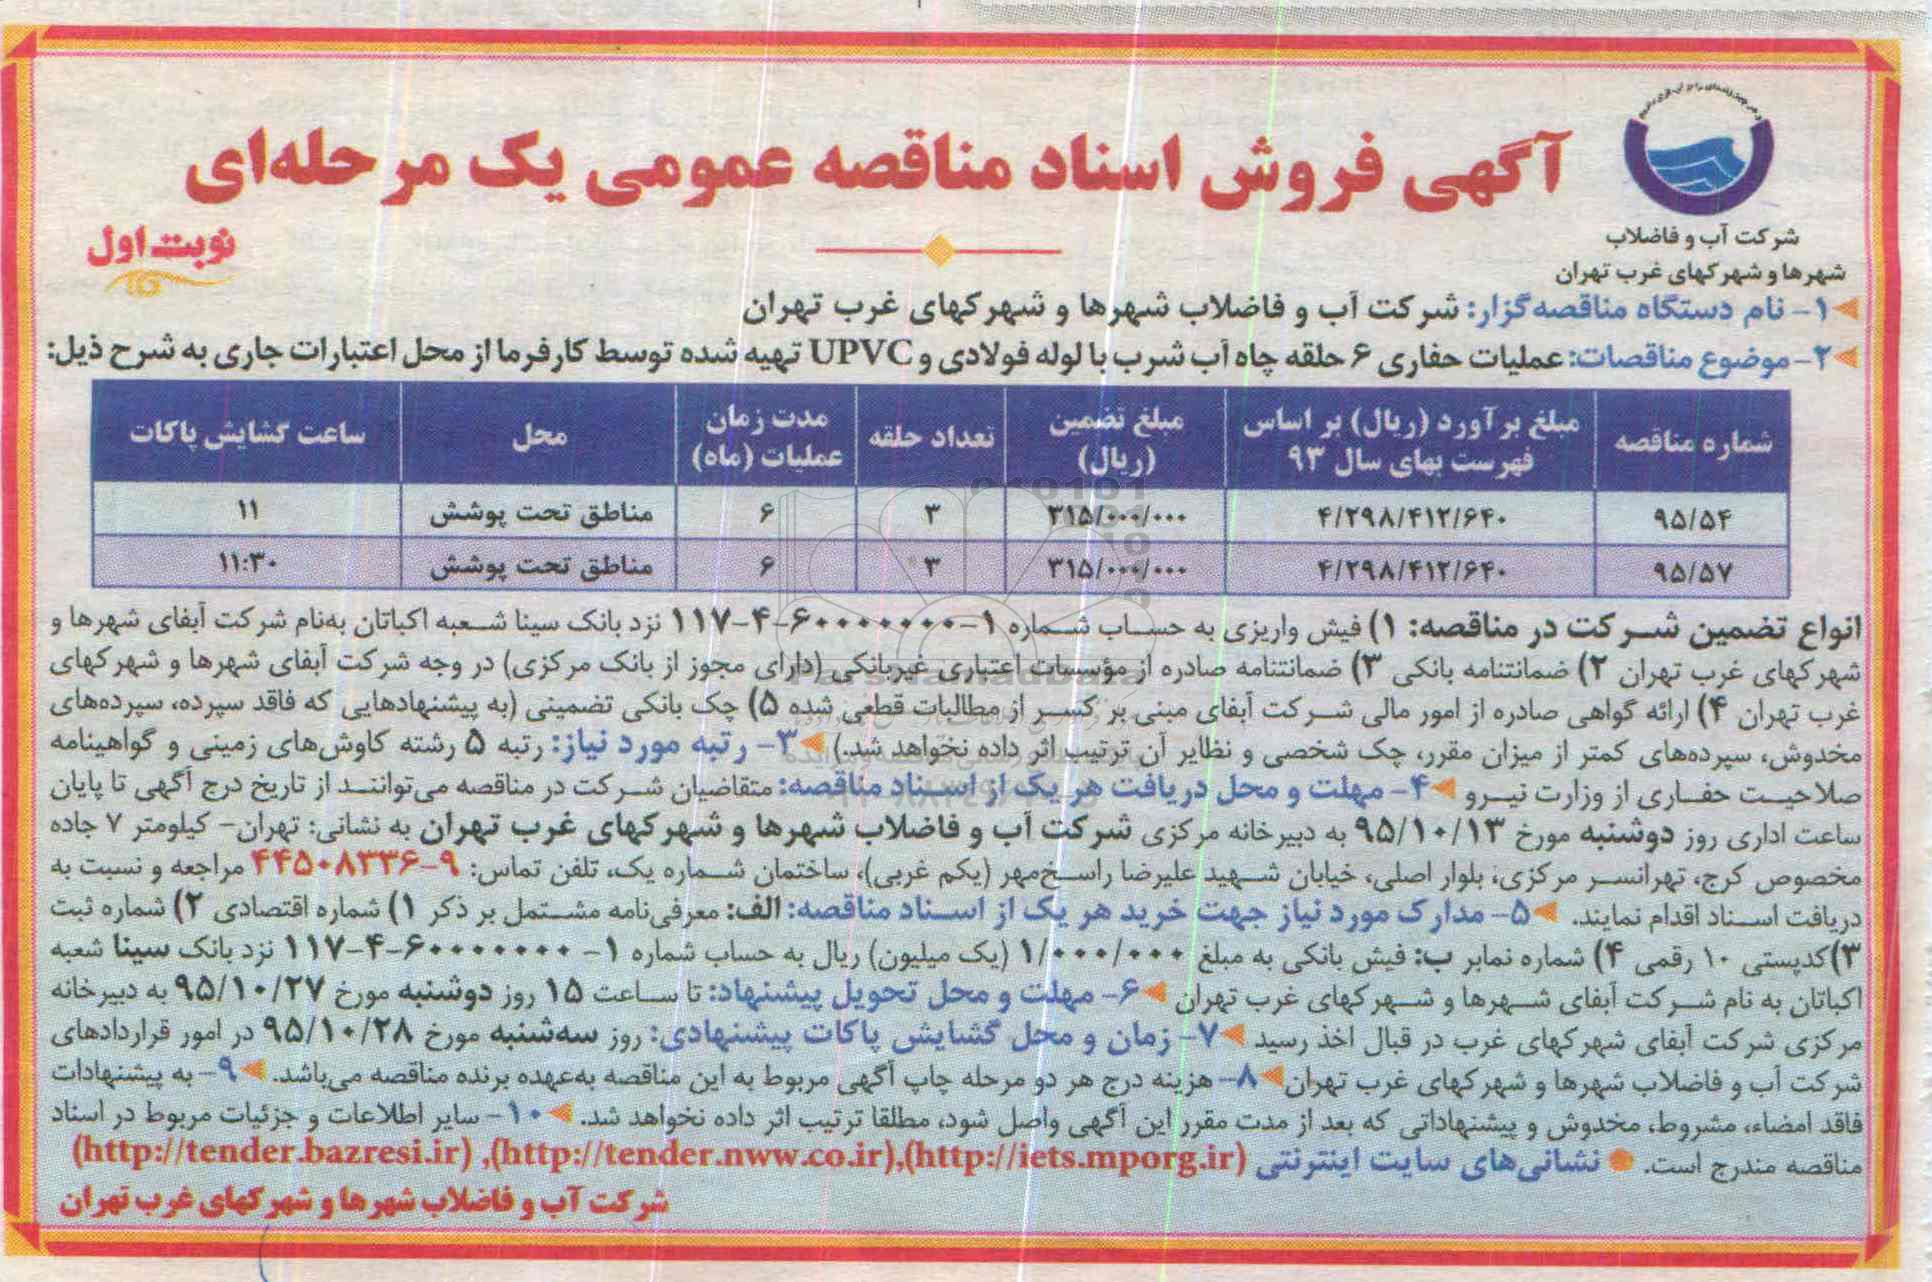 آگهی فروش اسناد مناقصه عمومی یک مرحله‌ای
شرکت آب و فاضلاب
شهرها و شهرکهای غرب تهران
نوبت اول
۱- نام دستگاه مناقصه‌گزار: شرکت آب و فاضلاب شهرها و شهرکهای غرب تهران
۲- موضوع مناقصات: عملیات حفاری ۶ حلقه چاه آب شرب با لوله فولادی و UPVC تهیه شده توسط کارفرما از محل اعتبارات جاری به شرح ذیل:
شماره مناقصه | مبلغ برآورد (ریال) بر اساس فهرست بهای سال ۹۳ | مبلغ تضمین (ریال) | تعداد حلقه | مدت زمان عملیات (ماه) | محل | ساعت گشایش پاکات
۹۵/۵۴ | ۴/۲۹۸/۴۱۲/۶۴۰ | ۳۱۵/۰۰۰/۰۰۰ | ۳ | ۶ | مناطق تحت پوشش | ۱۱
۹۵/۵۷ | ۴/۲۹۸/۴۱۲/۶۴۰ | ۳۱۵/۰۰۰/۰۰۰ | ۳ | ۶ | مناطق تحت پوشش | ۱۱:۳۰
انواع تضمین شرکت در مناقصه: ۱) فیش واریزی به حساب شماره ۱-۶۰۰۰۰۰۰۰-۴-۱۱۷ نزد بانک سینا شعبه اکباتان به‌نام شرکت آبفای شهرها و
شهرکهای غرب تهران ۲) ضمانتنامه بانکی ۳) ضمانتنامه صادره از مؤسسات اعتباری غیربانکی (دارای مجوز از بانک مرکزی) در وجه شرکت آبفای شهرها و شهرکهای
غرب تهران ۴) ارائه گواهی صادره از امور مالی شرکت آبفای مبنی بر کسر از مطالبات قطعی شده ۵) چک بانکی تضمینی (به پیشنهادهایی که فاقد سپرده، سپرده‌های
مخدوش، سپرده‌های کمتر از میزان مقرر، چک شخصی و نظایر آن ترتیب اثر داده نخواهد شد.) ۳- رتبه مورد نیاز: رتبه ۵ رشته کاوش‌های زمینی و گواهینامه
صلاحیت حفاری از وزارت نیرو ۴- مهلت و محل دریافت هر یک از اسناد مناقصه: متقاضیان شرکت در مناقصه می‌توانند از تاریخ درج آگهی تا پایان
ساعت اداری روز دوشنبه مورخ ۹۵/۱۰/۱۳ به دبیرخانه مرکزی شرکت آب و فاضلاب شهرها و شهرکهای غرب تهران به نشانی: تهران- کیلومتر ۷ جاده
مخصوص کرج، تهرانسر مرکزی، بلوار اصلی، خیابان شهید علیرضا راسخ‌مهر (یکم غربی)، ساختمان شماره یک، تلفن تماس: ۹-۴۴۵۰۸۳۳۶ مراجعه و نسبت به
دریافت اسناد اقدام نمایند. ۵- مدارک مورد نیاز جهت خرید هر یک از اسناد مناقصه: الف: معرفی‌نامه مشتمل بر ذکر ۱) شماره اقتصادی ۲) شماره ثبت
۳) کدپستی ۱۰ رقمی ۴) شماره نمابر ب: فیش بانکی به مبلغ ۱/۰۰۰/۰۰۰ (یک میلیون) ریال به حساب شماره ۱-۶۰۰۰۰۰۰۰-۴-۱۱۷ نزد بانک سینا شعبه
اکباتان به نام شرکت آبفای شهرها و شهرکهای غرب تهران ۶- مهلت و محل تحویل پیشنهاد: تا ساعت ۱۵ روز دوشنبه مورخ ۹۵/۱۰/۲۷ به دبیرخانه
مرکزی شرکت آبفای شهرکهای غرب در قبال اخذ رسید ۷- زمان و محل گشایش پاکات پیشنهادی: روز سه‌شنبه مورخ ۹۵/۱۰/۲۸ در امور قراردادهای
شرکت آب و فاضلاب شهرها و شهرکهای غرب تهران ۸- هزینه درج هر دو مرحله چاپ آگهی مربوط به این مناقصه به‌عهده برنده مناقصه می‌باشد. ۹- به پیشنهادات
فاقد امضاء، مشروط، مخدوش و پیشنهاداتی که بعد از مدت مقرر این آگهی واصل شود، مطلقا ترتیب اثر داده نخواهد شد. ۱۰- سایر اطلاعات و جزئیات مربوط در اسناد
مناقصه مندرج است. نشانی‌های سایت اینترنتی (http://iets.mporg.ir),(http://tender.nww.co.ir), (http://tender.bazresi.ir)
شرکت آب و فاضلاب شهرها و شهرکهای غرب تهران